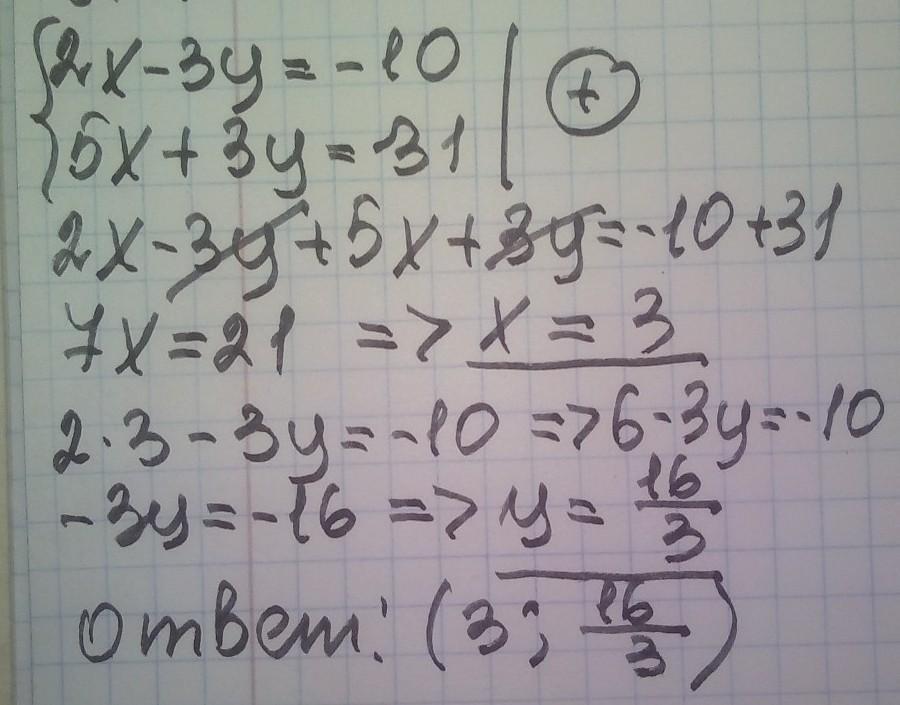 {2x-3y=-10 | +
{5x+3y=31
2x-3y+5x+3y=-10+31
7x=21 => x=3
2·3-3y=-10 =>6-3y=-10
-3y=-16 => y=16/3
Ответ: (3; 16/3)